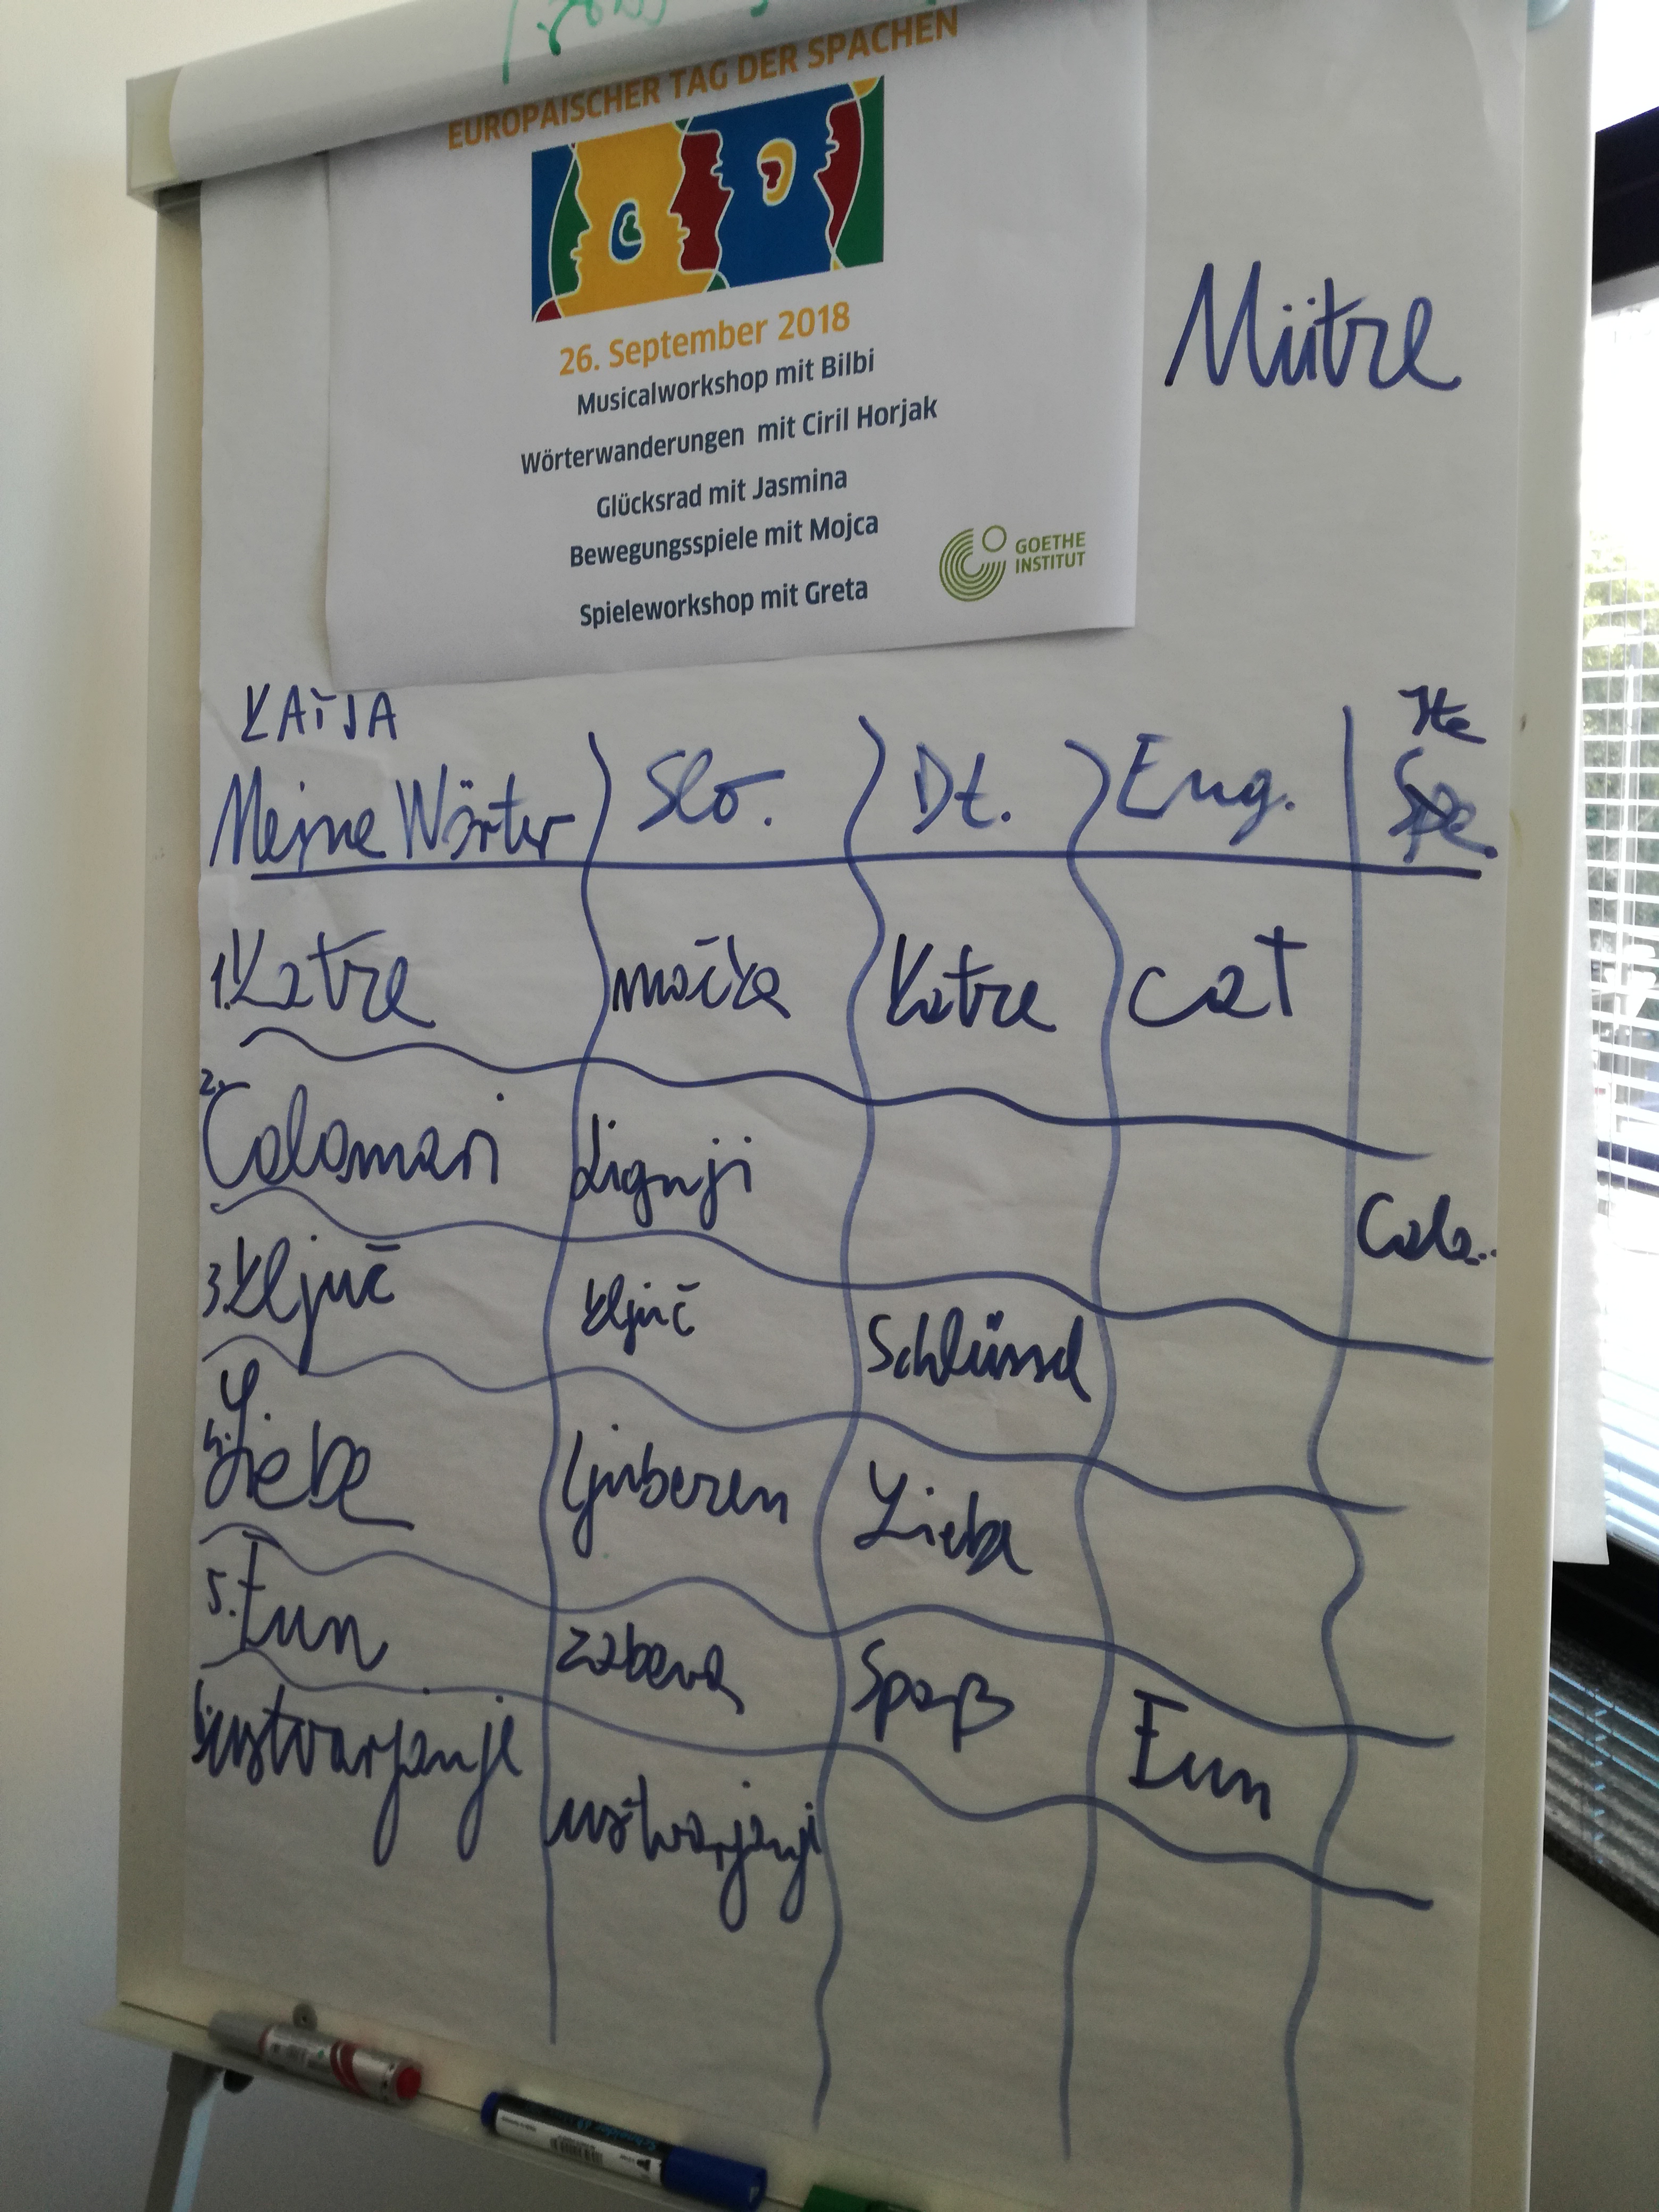 EUROPÄISCHER TAG DER SPACHEN
26. September 2018
Musicalworkshop mit Bilbi
Wörterwanderungen mit Ciril Horjak
Glücksrad mit Jasmina
Bewegungsspiele mit Mojca
Spieleworkshop mit Greta
GOETHE
INSTITUT
Mütze
KATJA
Meine Wörter Slo. Dt. Eng. Ita
1. Katze mačka Katze cat
2. Calamari Lignji Cala..
3. Ključ ključ Schlüssel
4. Liebe ljubezen Liebe
5. Fun zabava Spaß Fun
6. ustvarjanje ustvarjanje
Schneider